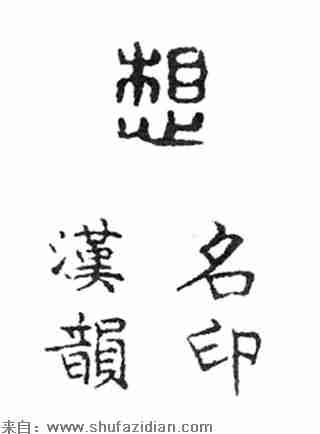 想
名印
漢韻
来自：www.shufazidian.com